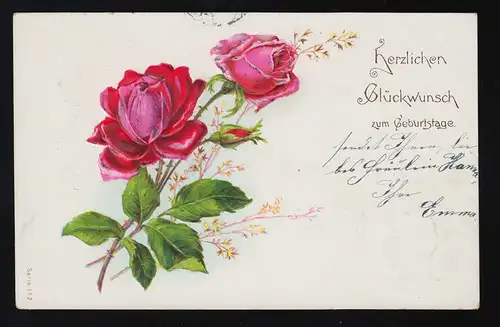 Herzlichen
Glückwunsch
zum Geburtstage.
sendet Ihnen, lie-
bes Fräulein
Ihre
Emma.